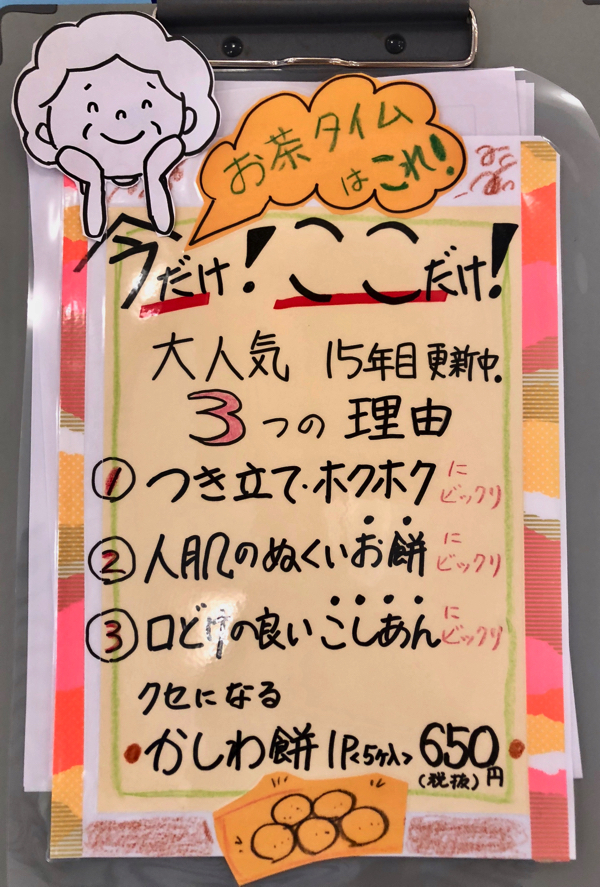 お茶タイム
はこれ!
今だけ! ここだけ!
大人気 15年目更新中.
3つの理由
① つき立て・ホクホクにビックリ
② 人肌のぬくいお餅にビックリ
③ 口どけの良いこしあんにビックリ
クセになる
・かしわ餅 1P<5ヶ入> 650円・
(税抜)